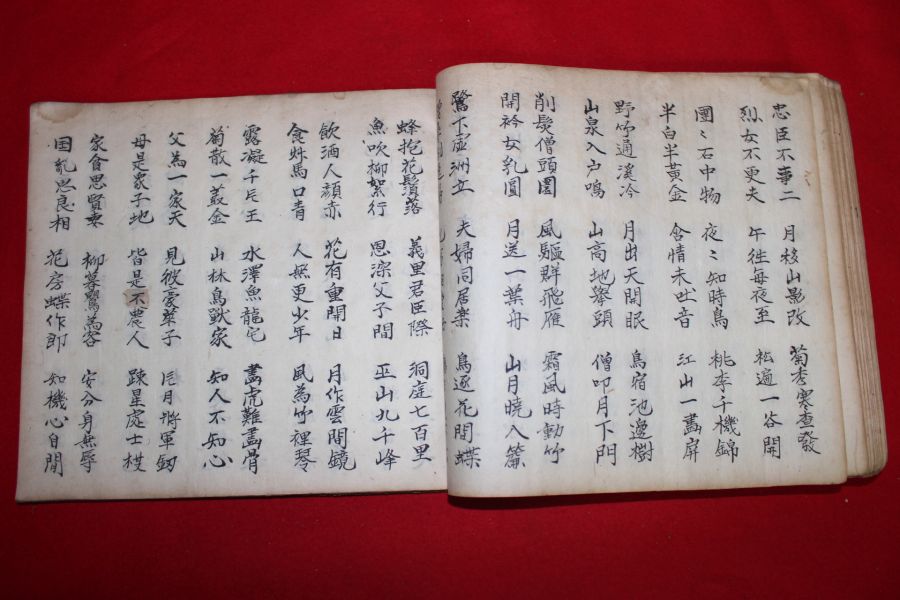 忠臣不事二 月枝山影改 菊秀寒查發
烈女不更夫 午往每夜至 松遍一谷開
團〻石中物 夜〻知時鳥 桃李千機錦
半白半黃金 含情未吐音 江山一畵屏
野竹通溪冷 月出天開眼 鳥宿池邊樹
山泉入戶鳴 山高地擧頭 僧叩月下門
削髮僧頭圓 風驅群飛雁 霜風時動竹
開衿女乳圓 月送一葉舟 山月曉入簾
鷺下蘆洲立 夫婦同居樂 鳥逐花間蝶
蜂抱花鬚落 義里君臣際 洞庭七百里
魚吹柳絮行 恩深父子間 巫山九千峰
飮酒人顔赤 花有重開日 月作雲間鏡
食艸馬口青 人無更少年 風為竹裡琴
露凝千片玉 水澤魚龍宅 畵虎難畵骨
菊散一叢金 山林鳥獸家 知人不知心
父為一家天 見彼豪華子 月將軍釖
母是衆子地 皆是不農人 踈星處士杖
家貧思賢妻 柳幕鶯為客 安分身無辱
国乱思良相 花房蝶作郎 知機心自閒